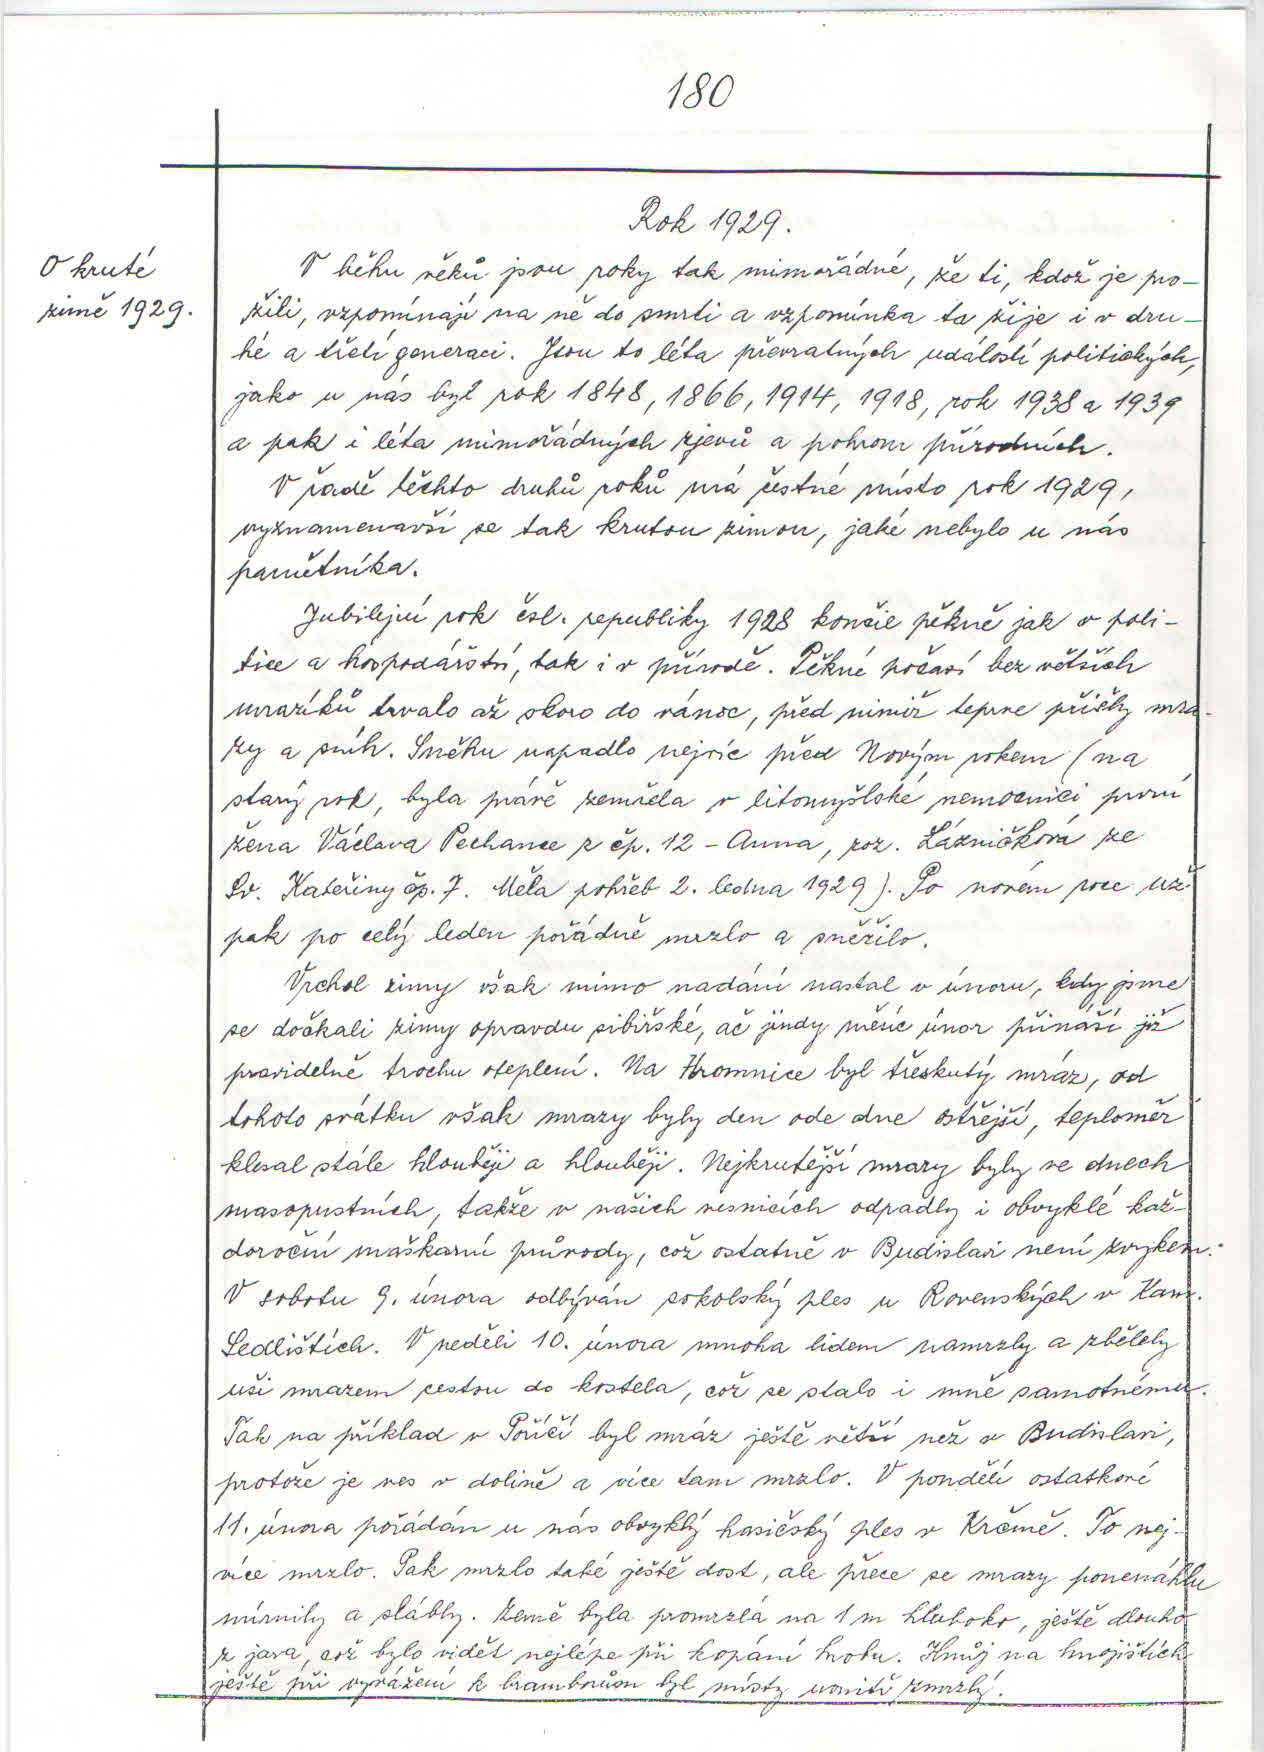 180
Rok 1929.
O kruté
zimě 1929.
V běhu věků jsou roky tak mimořádné, že ti, kdož je pro-
žili, vzpomínají na ně do smrti a vzpomínka ta žije i v dru-
hé a třetí generaci. Jsou to léta převratných událostí politických,
jako u nás byl rok 1848, 1866, 1914, 1918, rok 1938 a 1939
a pak i léta mimořádných zjevů a pohrom přírodních.
V řadě těchto druhů roků má čestné místo rok 1929,
vyznamenavší se tak krutou zimou, jaké nebylo u nás
pamětníka.
Jubilejní rok čsl. republiky 1928 končil pěkně jak v poli-
tice a hospodářství, tak i v přírodě. Pěkné počasí bez větších
mrazíků trvalo až skoro do vánoc, před nimiž teprve přišly mra-
zy a sníh. Sněhu napadlo nejvíc před Novým rokem (na
starý rok, byla právě zemřela v litomyšlské nemocnici první
žena Václava Pechance z čp. 12 - Anna, roz. Lázničková ze
Sv. Kateřiny čp. 7. Měla pohřeb 2. ledna 1929). Po novém roce už
pak po celý leden pořádně mrzlo a sněžilo.
Vrchol zimy však mimo nadání nastal v únoru, kdy jsme
se dočkali zimy opravdu sibiřské, ač jindy měsíc únor přináší již
pravidelně trochu oteplení. Na Hromnice byl třeskutý mráz, od
tohoto svátku však mrazy byly den ode dne ostřejší, teploměr
klesal stále hlouběji a hlouběji. Nejkrutější mrazy byly ve dnech
masopustních, takže v našich vesnicích odpadly i obvyklé kaž-
doroční maškarní průvody, což ostatně v Budislavi není zvykem.
V sobotu 9. února odbýván sokolský ples u Rovenských v Kam.
Sedlištích. V neděli 10. února mnoha lidem namrzly a zbělely
uši mrazem cestou do kostela, což se stalo i mně samotnému.
Tak na příklad v Poříčí byl mráz ještě větší než v Budislavi,
protože je ves v dolině a více tam mrzlo. V pondělí ostatkové
11. února pořádán u nás obvyklý hasičský ples v Krčmě. To nej-
více mrzlo. Pak mrzlo také ještě dost, ale přece se mrazy ponenáhlu
mírnily a slábly. Země byla promrzlá na 1 m hluboko, ještě dlouho
z jara, což bylo vidět nejlépe při kopání hrobu. Hnůj na hnojištích
ještě při vyvážení k bramborům byl místy uvnitř zmrzlý.